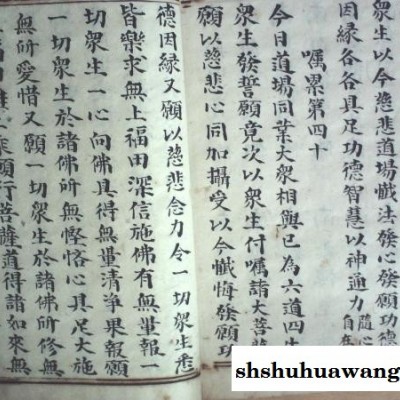 衆生以今慈悲道場懺法發心發願功德
因緣各各具足功德智慧以神通力隨心自在
囑累第四十
今日道場同業大衆相與已為六道四生
衆生發誓願竟次以衆生付囑諸大菩薩
願以慈悲心同加攝受以今懺悔發願功
德因緣又願以慈悲念力令一切衆生悉
皆樂求無上福田深信施佛有無量報一
切衆生一心向佛具得無量清淨果報願
一切衆生於諸佛所無慳悋心具足大施
無所愛惜又願一切衆生於諸佛所修無
願行菩薩道得諸如來無
shshuhuawang